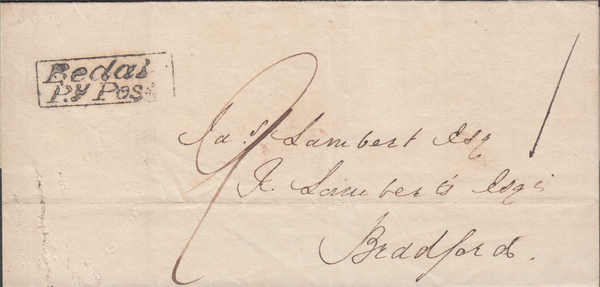 Bedal
P.y Pos
9
Jas Lambert Esq
R. Lambert's Esqr
Bradford.